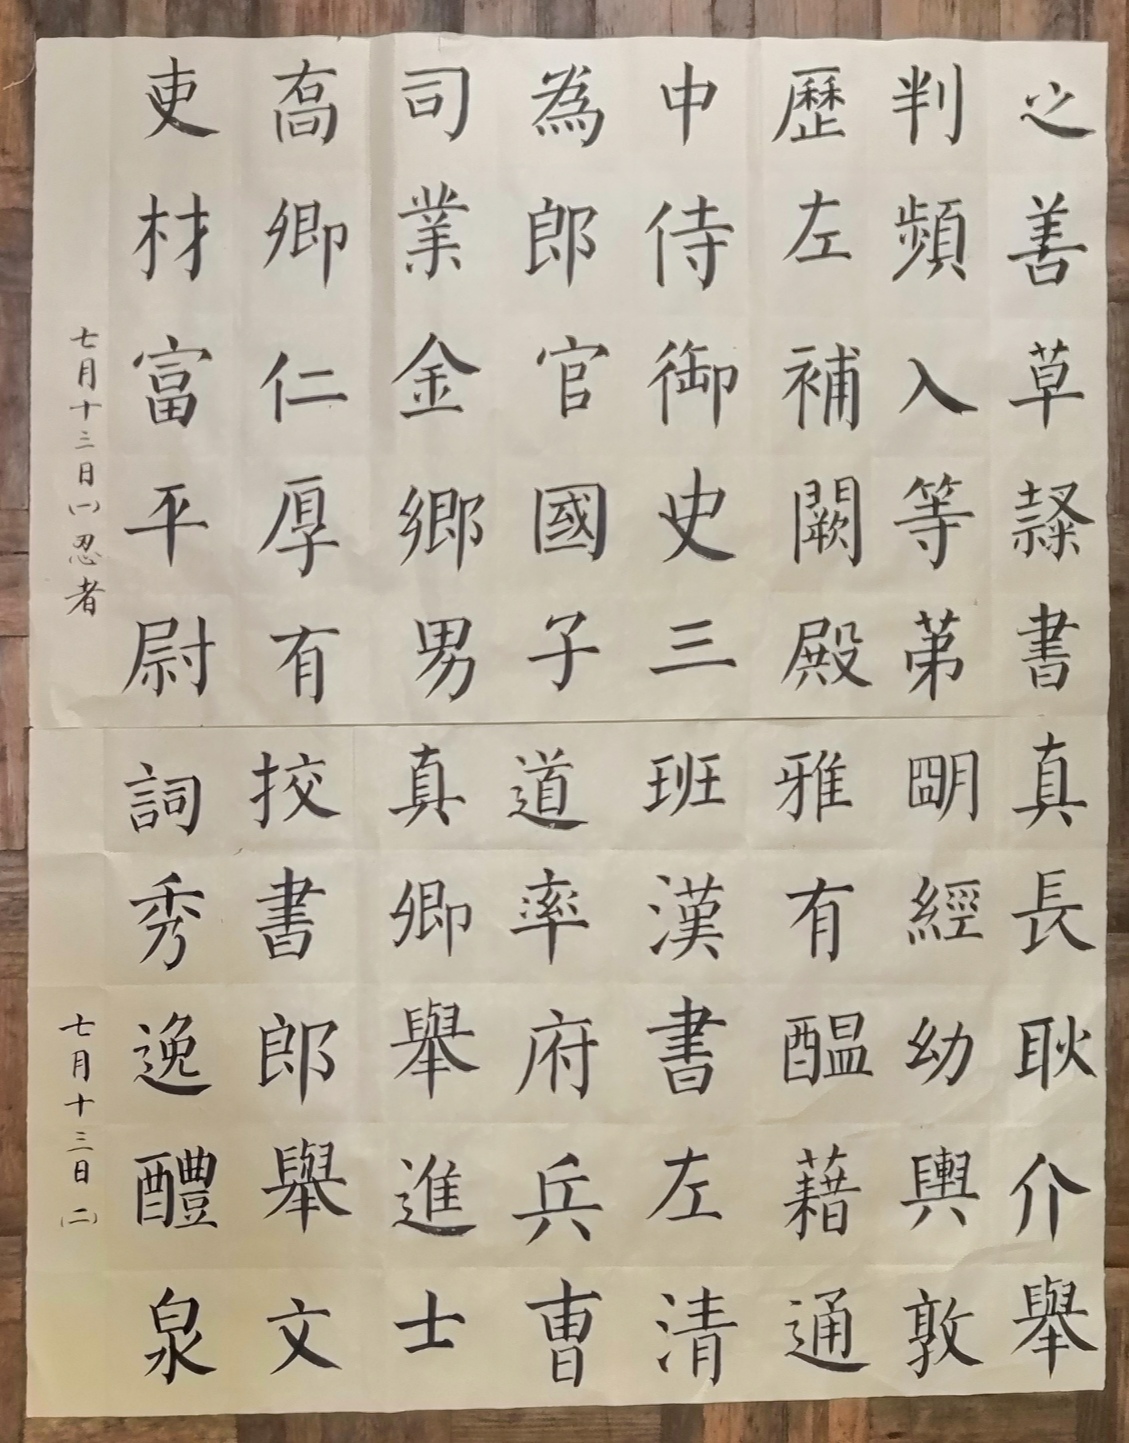 之善草隸書
判頻入等第
歷左補闕殿
中侍御史三
為郎官國子
司業金鄉男
喬卿仁厚有
吏材富平尉
七月十三日(一)忍者
真長耿介舉
朙經幼輿敦
雅有醞藉通
班漢書左清
道率府兵曹
真卿舉進士
挍書郎舉文
詞秀逸醴泉
七月十三日(二)